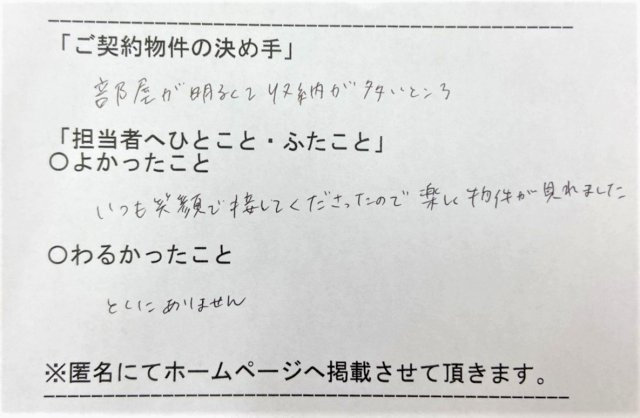 「ご契約物件の決め手」
部屋が明るくて収納が多いところ
「担当者へひとこと・ふたこと」
○よかったこと
いつも笑顔で接してくださったので楽しく物件が見れました
○わるかったこと
とくにありません
※匿名にてホームページへ掲載させて頂きます。